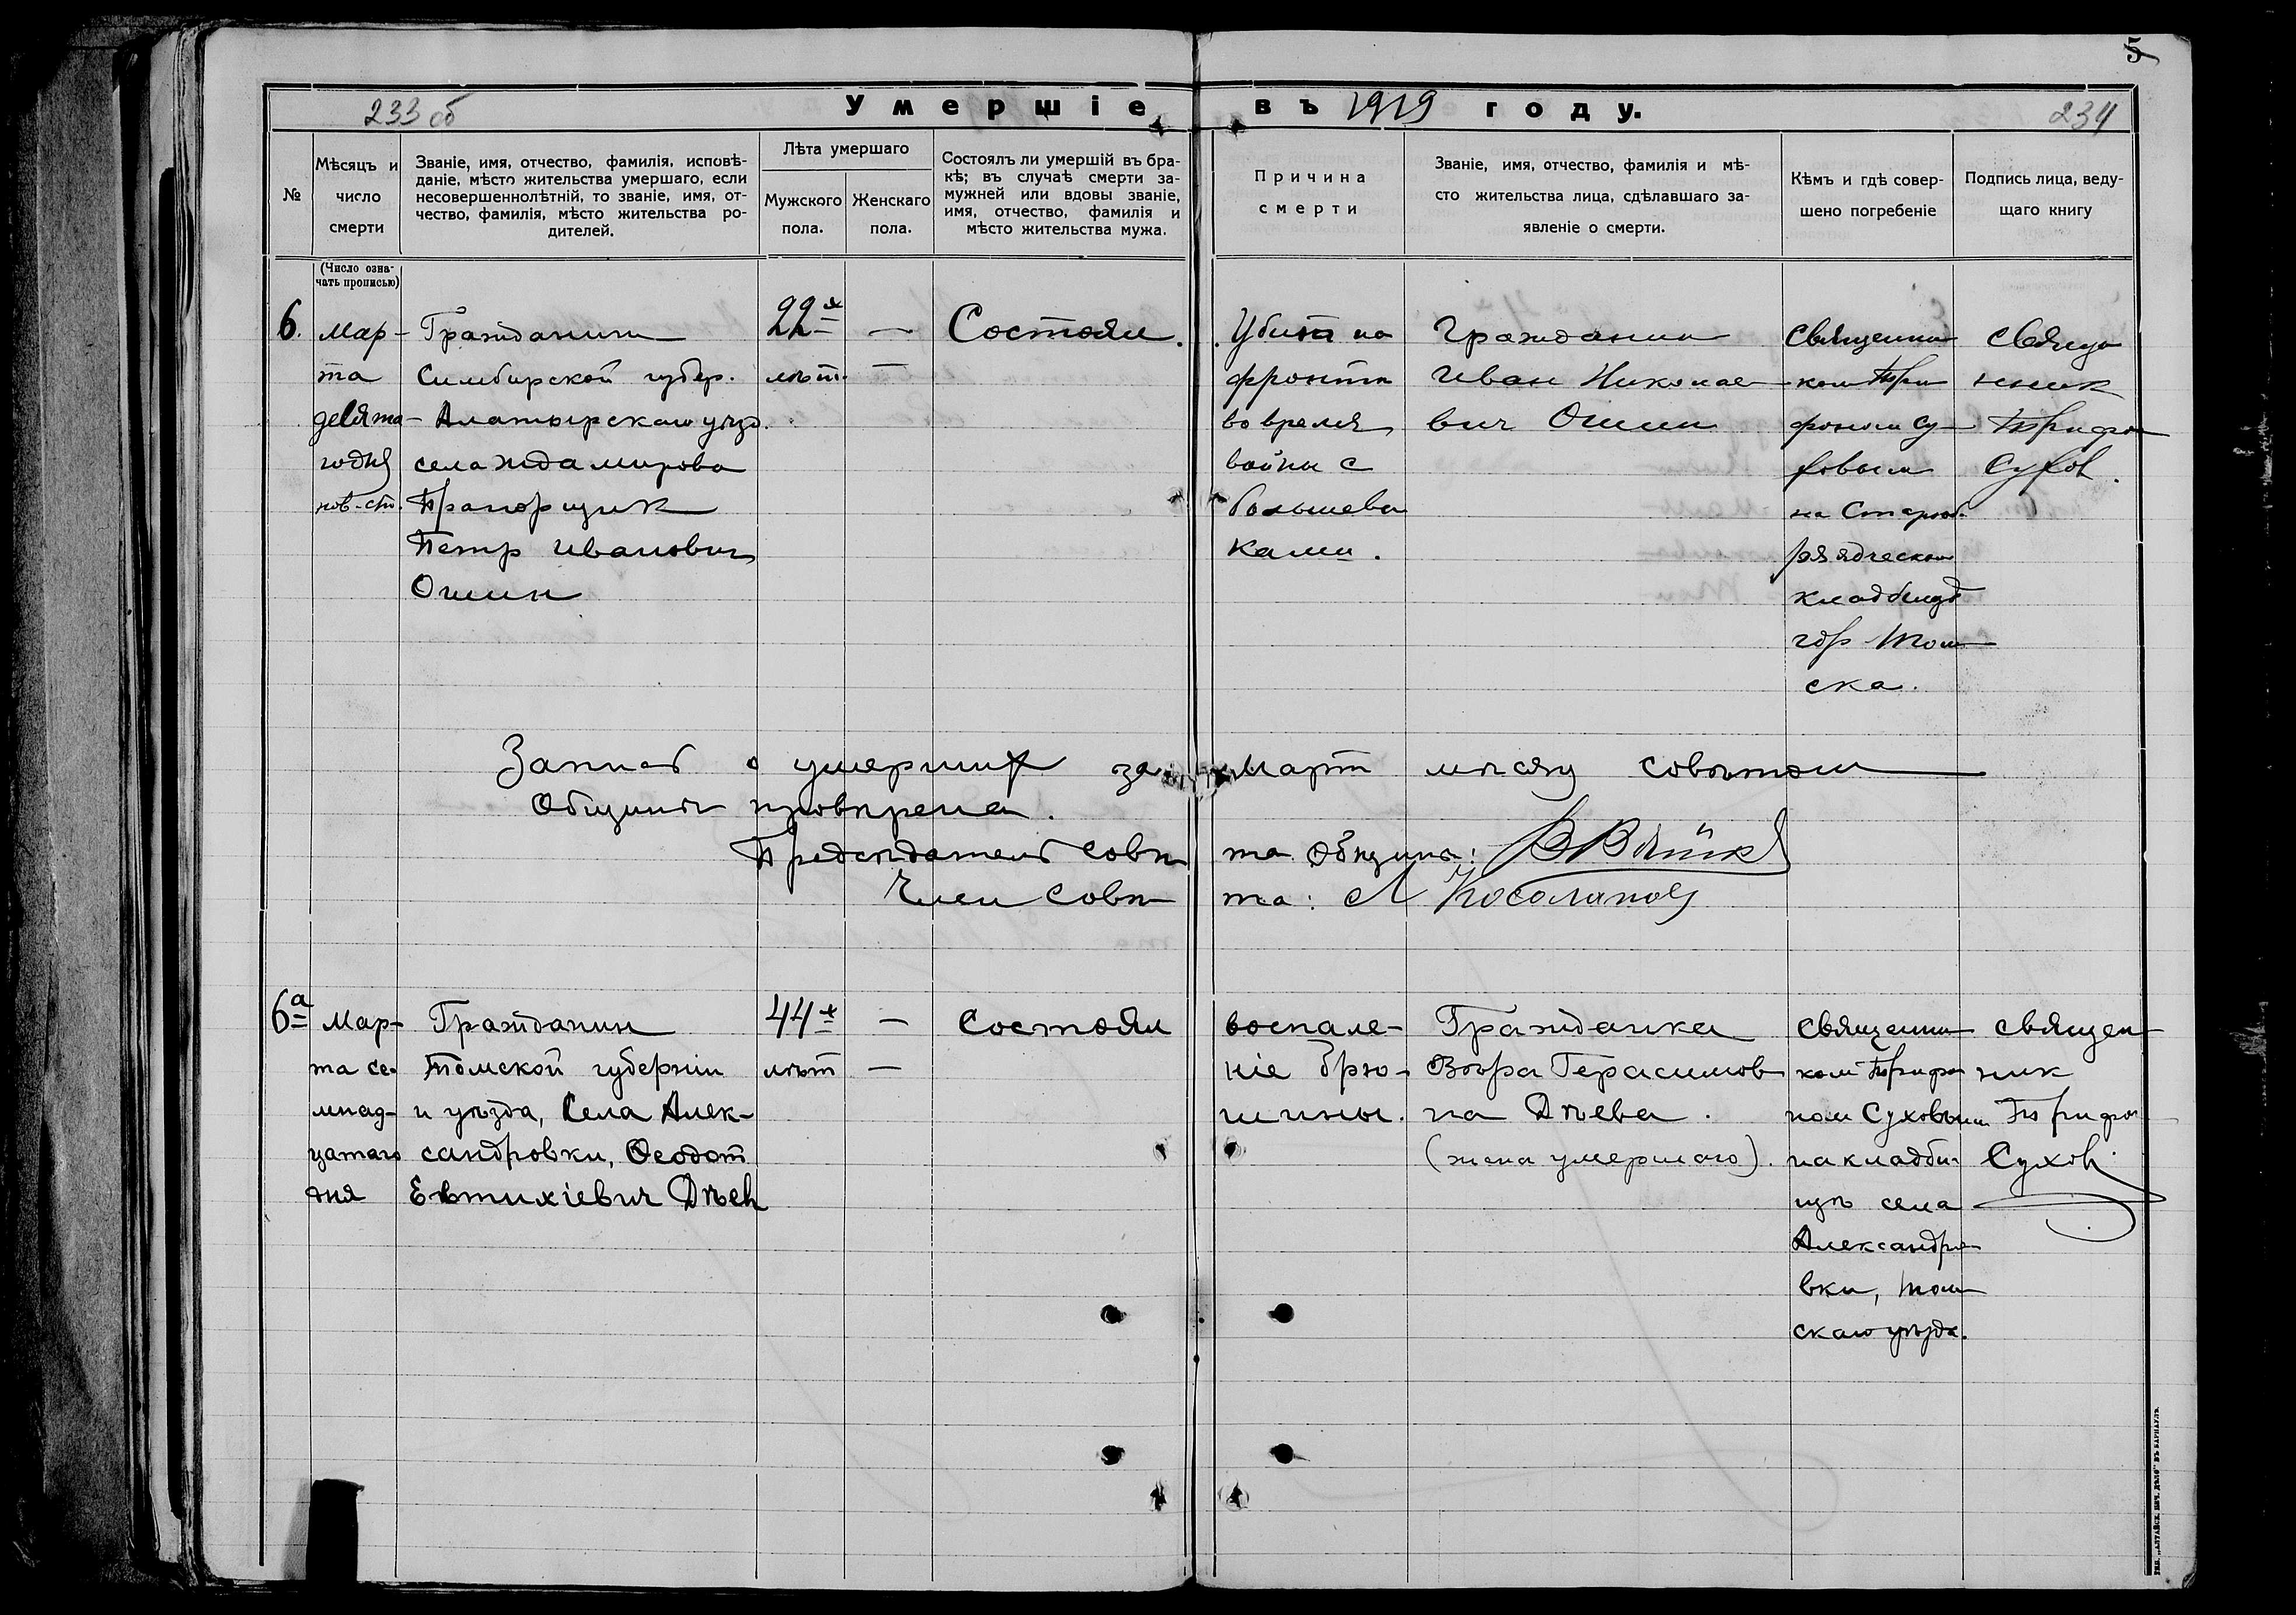 5
233 об
Умершіе въ 1919 году.
234
№
Мѣсяцъ и
число
смерти
Званіе, имя, отчество, фамилія, исповѣ-
даніе, мѣсто жительства умершаго, если
несовершеннолѣтній, то званіе, имя, от-
чество, фамилія, мѣсто жительства ро-
дителей.
Лѣта умершаго
Мужского
пола.
Женскаго
пола.
Состоялъ ли умершій въ бра-
кѣ; въ случаѣ смерти за-
мужней или вдовы званіе,
имя, отчество, фамилія и
мѣсто жительства мужа.
Причина
смерти
Званіе, имя, отчество, фамилія и мѣ-
сто жительства лица, сдѣлавшаго за-
явленіе о смерти.
Кѣмъ и гдѣ совер-
шено погребеніе
Подпись лица, веду-
щаго книгу
(Число озна-
чать прописью)
6.
Мар-
та
девята-
го дня
нов. ст.
Гражданин
Симбирской губер.
Алатырскаго уѣзд.
села Ждамирова
Прапорщик
Петр Иванович
Ошин
22х
лѣт.
—
—
Состоял.
Убит на
фронтѣ
во время
войны с
большеви
ками.
Гражданин
Иван Николае-
вич Ошин
Священни
ком Три
фоном Су-
ховым
на Старооб-
рядческом
кладбищѣ
гор. Том-
ска.
Священ
ник
Трифон
Сухов.
Запись о умерших за Март мѣсяц совѣтом
Общины провѣрена.
Предсѣдатель Совѣ
та Общины:
Член Совѣ
та: Косолапов
6а
Мар-
та се-
мнад-
цатаго
дня
Гражданин
Томской губерніи
и уѣзда, Села Алек-
сандровки, Ѳеодот
Евтихіевич Дѣев
44х
лѣт
—
—
Состоял
воспале-
ніе брю-
шины.
Гражданка
Вѣра Герасимов
на Дѣева.
(жена умершаго).
Священни
ком Трифо
ном Суховым
на кладби-
щѣ села
Александро
вки, Том
скаго уѣзда.
Священ
ник
Трифон
Сухов.
Тип. „Алтайск. Печ. Дѣло“ въ Барнаулѣ.